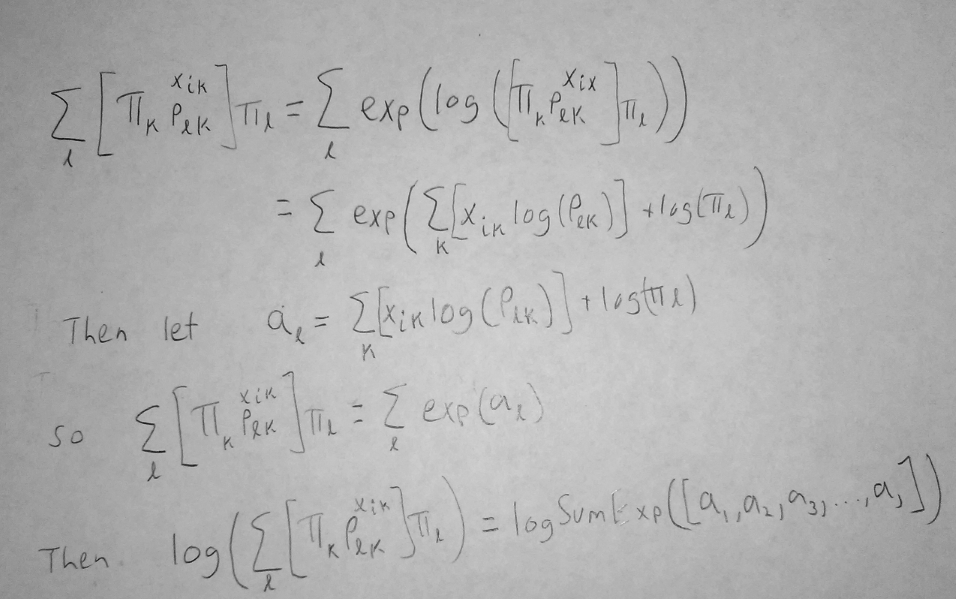 ∑_l [∏_k p_{lk}^{x_{ik}}] π_l = ∑_l exp(log([∏_k p_{lk}^{x_{ix}}] π_l))
= ∑_l exp(∑_k [x_{ik} log(p_{lk})] + log(π_l))
Then let a_l = ∑_k [x_{ik} log(p_{lk})] + log(π_l)
so ∑_l [∏_k p_{lk}^{x_{ik}}] π_l = ∑_l exp(a_l)
Then log(∑_l [∏_k p_{lk}^{x_{ik}}] π_l) = logSumExp([a_1, a_2, a_3, ..., a_l])